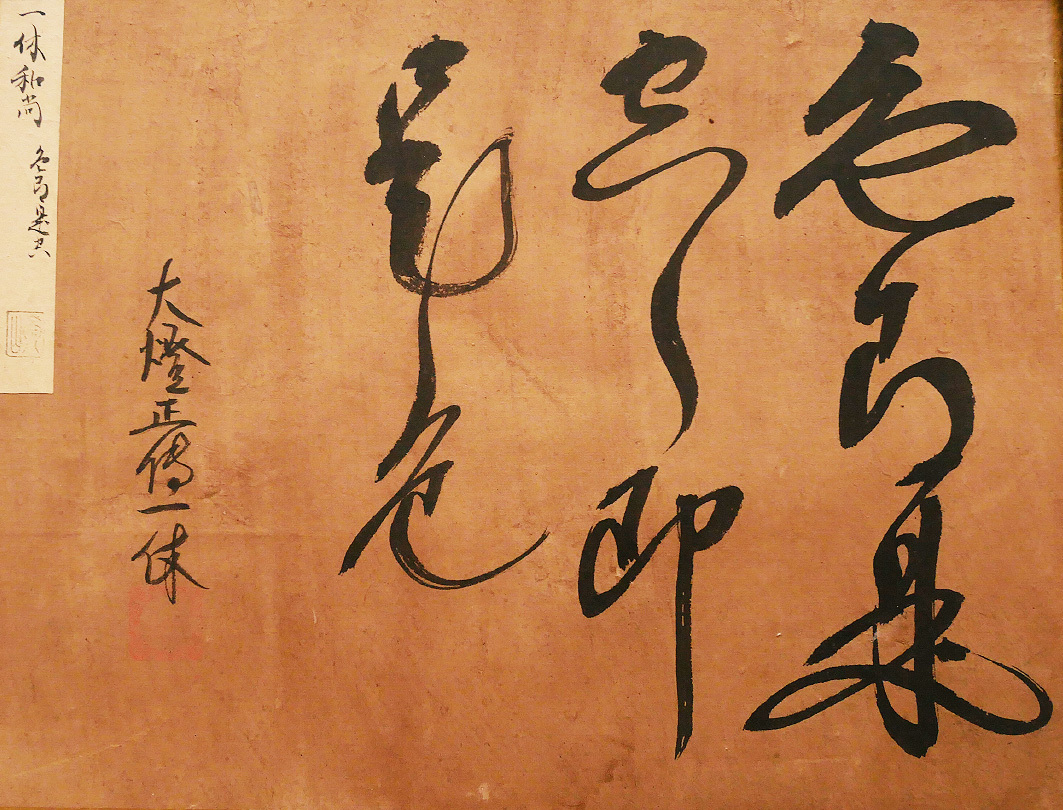 色即是
空即
是色
大燈正傳一休
一休和尚 色即是空